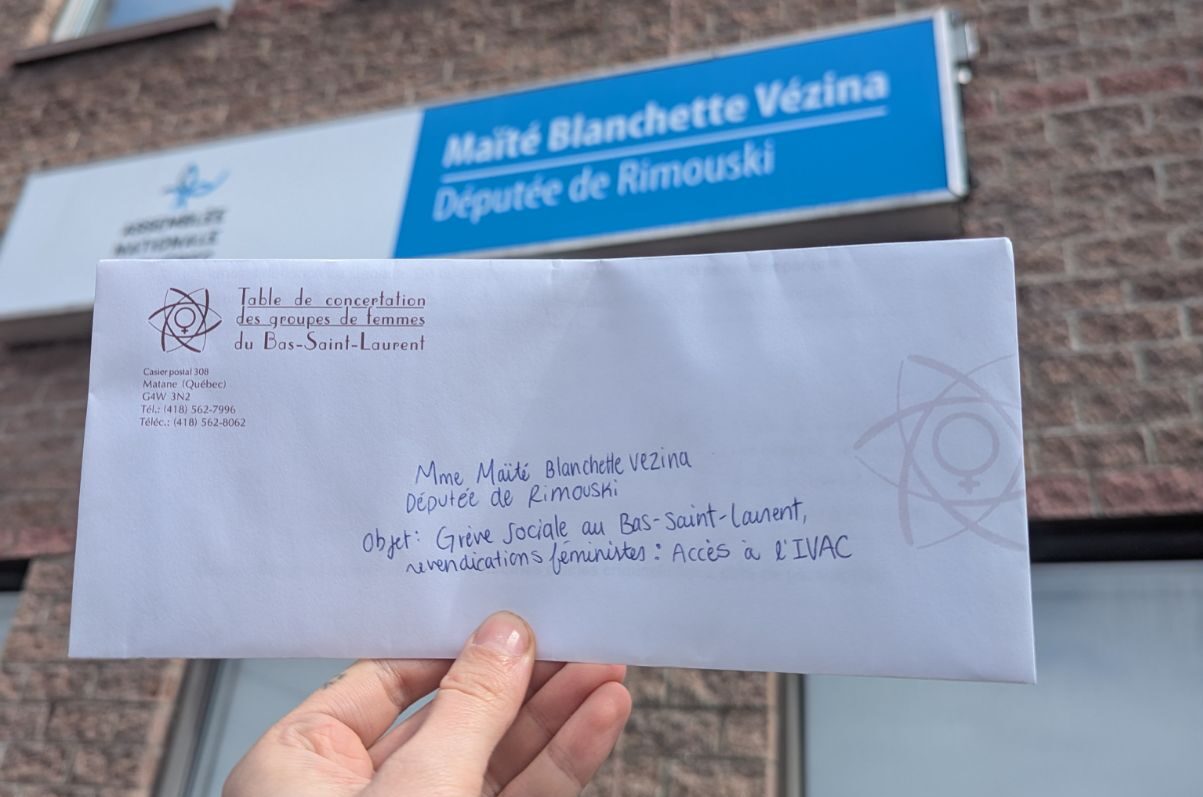 Maïté Blanchette Vézina
Députée de Rimouski
ASSEMBLÉE
NATIONALE
Table de concertation
des groupes de femmes
du Bas-Saint-Laurent
Casier postal 308
Matane (Québec)
G4W 3N2
Tél.: (418) 562-7996
Téléc.: (418) 562-8062
Mme Maïté Blanchette Vezina
Députée de Rimouski
Objet: Grève Sociale au Bas-Saint-Laurent,
revendications féministes: Accès à l'IVAC